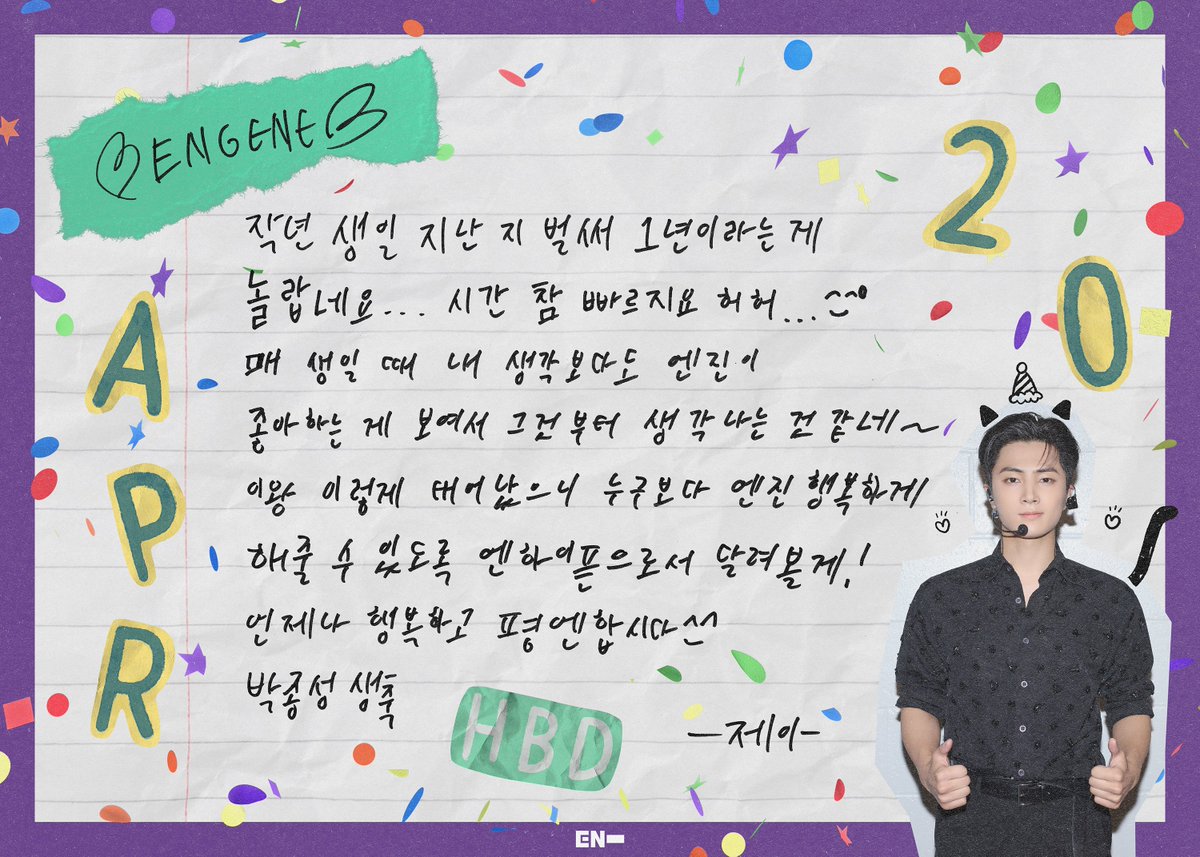 ENGENE
APR
20
작년 생일 지난 지 벌써 1년이라는게
놀랍네요... 시간 참 빠르지요 허허...^^
매 생일 때 내 생각보다도 엔진이
좋아하는 게 보여서 그것부터 생각나는 것 같네~
이왕 이렇게 태어났으니 누구보다 엔진 행복하게
해줄 수 있도록 엔하이픈으로서 달려볼게!
언제나 행복하고 평엔합시다^^
박종성 생축
HBD
-제이-
EN-